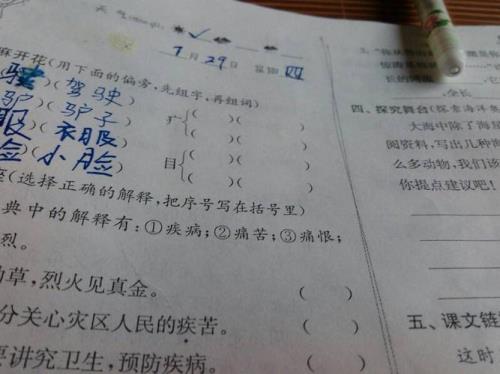 天气
7月29日 星期四
麻开花(用下面的偏旁,先组字,再组词)
驶)(驾驶)
驴)(驴子)
服)(衣服)
脸)(小脸)
疒{( )( )
( )( )
目{( )( )
( )( )
(选择正确的解释,把序号写在括号里)
典中的解释有:①疾病;②痛苦;③痛恨;
烈。
草,烈火见真金。 ( )
分关心灾区人民的疾苦。 ( )
要讲究卫生,预防疾病。 ( )
全长
四、探究舞台(探索海洋
大海中除了海
阅资料,写出几种海
么多动物,我们该
你提点建议吧!
五、课文链
这时